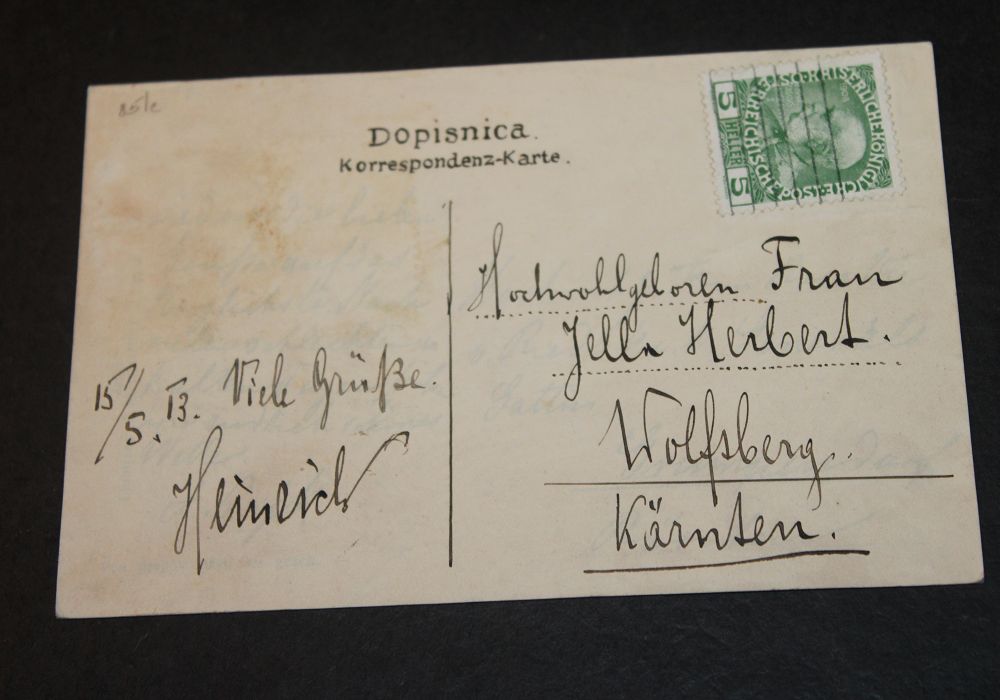 Dopisnica.
Korrespondenz-Karte.
5 HELLER 5
KAISERLICHEKÖNIGLICHE
ÖSTERREICHISCHE POST
Hochwohlgeboren Frau
Jella Herbert.
Wolfsberg.
Kärnten.
15/5. 13. Viele Grüße.
Heinrich